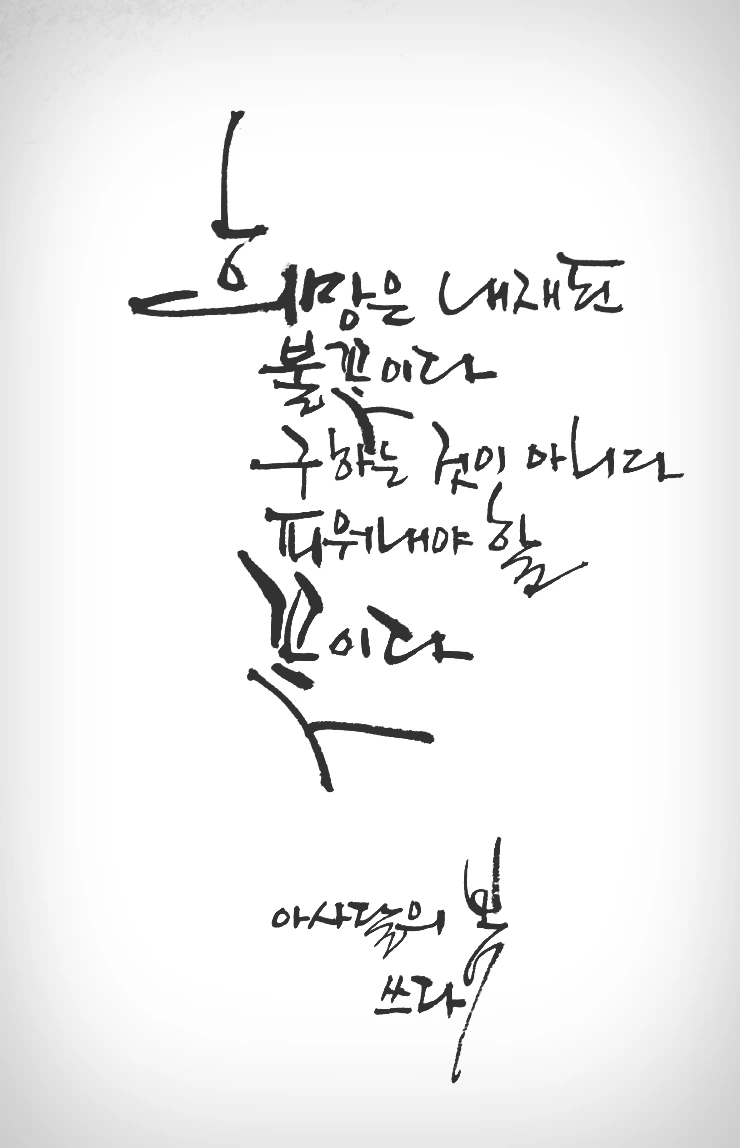 희망은 내재된
불꽃이다
구하는 것이 아니다
피워내야 할
꽃이다
아사달의 봄
쓰다